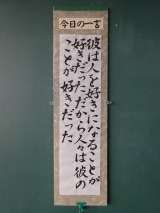 今日の一言
彼は人を好きになることが
好きだっただから人々は彼の
ことが好きだった